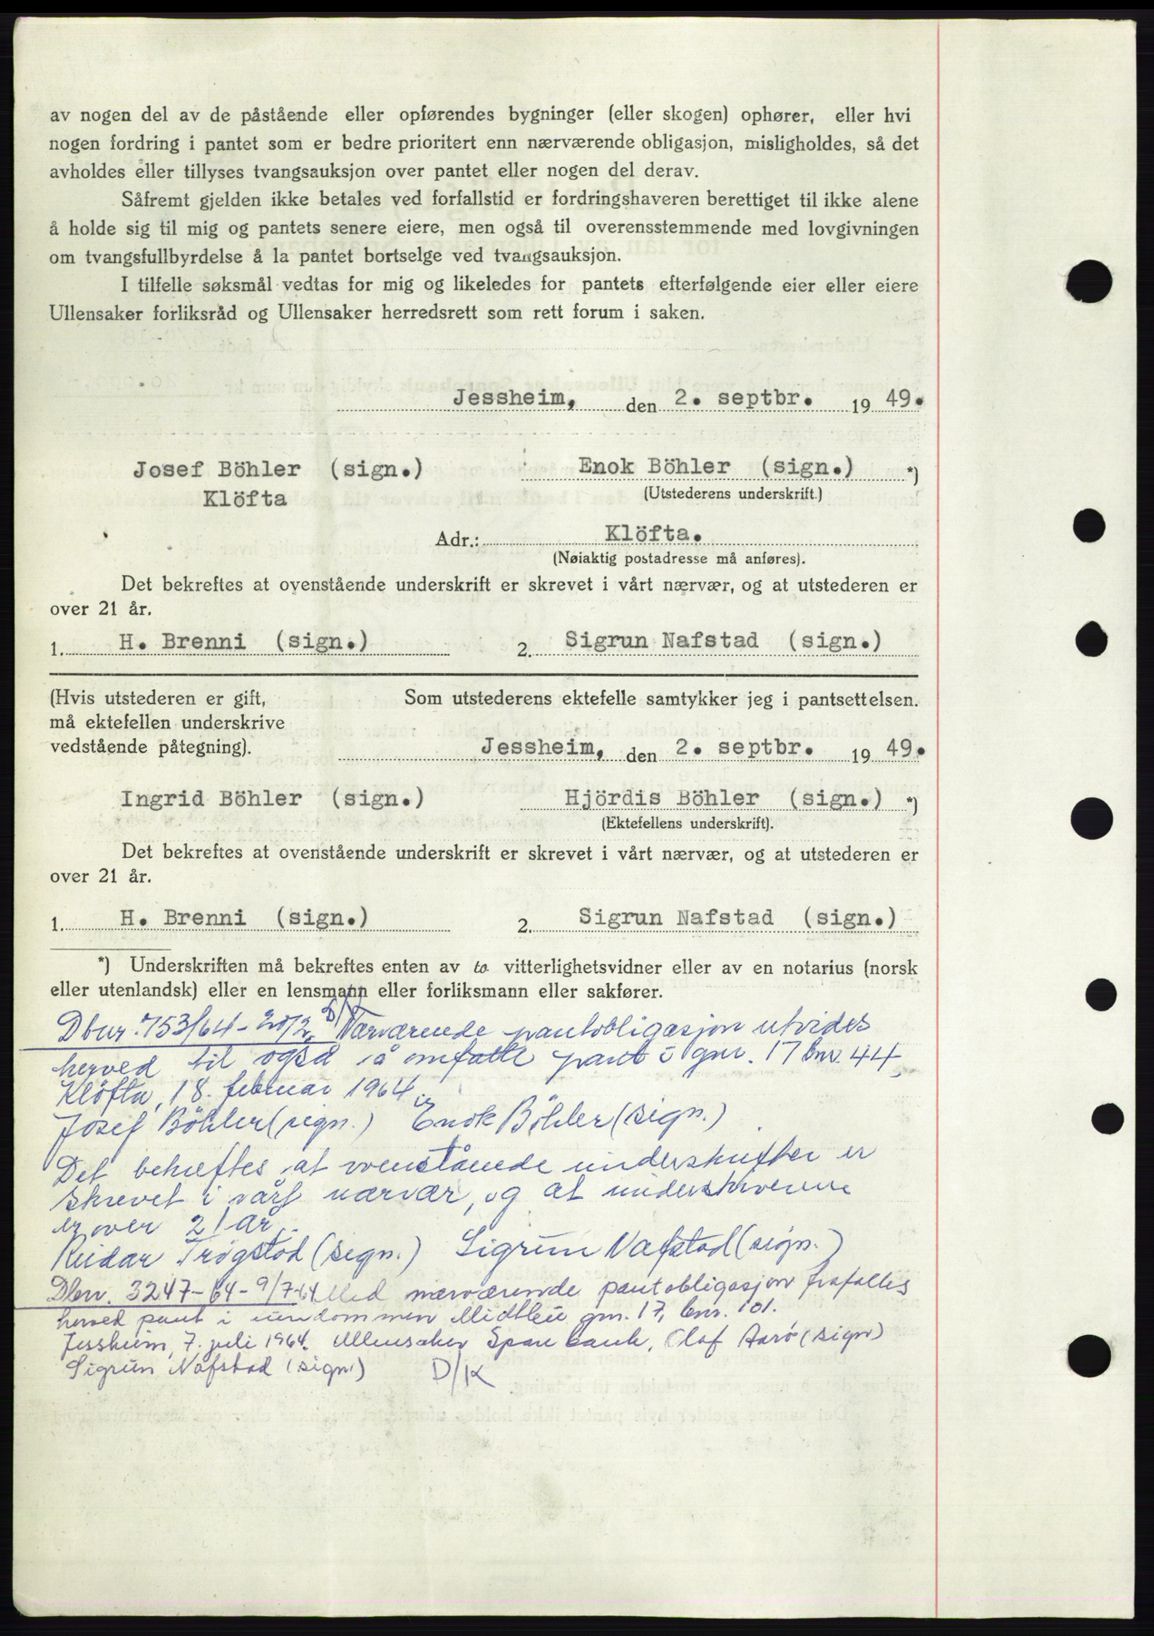 av nogen del av de påstående eller opførendes bygninger (eller skogen) ophører, eller hvi
nogen fordring i pantet som er bedre prioritert enn nærværende obligasjon, misligholdes, så det
avholdes eller tillyses tvangsauksjon over pantet eller nogen del derav.
Såfremt gjelden ikke betales ved forfallstid er fordringshaveren berettiget til ikke alene
å holde sig til mig og pantets senere eiere, men også til overensstemmende med lovgivningen
om tvangsfullbyrdelse å la pantet bortselge ved tvangsauksjon.
I tilfelle søksmål vedtas for mig og likeledes for pantets efterfølgende eier eller eiere
Ullensaker forliksråd og Ullensaker herredsrett som rett forum i saken.
Jessheim, den 2. septbr. 1949.
Josef Böhler (sign.) Enok Böhler (sign.) *)
Klöfta (Utstederens underskrift.)
Adr.: Klöfta.
(Nøiaktig postadresse må anføres).
Det bekreftes at ovenstående underskrift er skrevet i vårt nærvær, og at utstederen er
over 21 år.
1. H. Brenni (sign.) 2. Sigrun Nafstad (sign.)
(Hvis utstederen er gift, Som utstederens ektefelle samtykker jeg i pantsettelsen.
må ektefellen underskrive
vedstående påtegning). Jessheim, den 2. septbr. 1949.
Ingrid Böhler (sign.) Hjördis Böhler (sign.) *)
(Ektefellens underskrift).
Det bekreftes at ovenstående underskrift er skrevet i vårt nærvær, og at utstederen er
over 21 år.
1. H. Brenni (sign.) 2. Sigrun Nafstad (sign.)
*) Underskriften må bekreftes enten av to vitterlighetsvidner eller av en notarius (norsk
eller utenlandsk) eller en lensmann eller forliksmann eller sakfører.
Dbnr. 753/64 - 20/2. Nærværende pantobligasjon utvides
herved til også å omfatte pant i gnr. 17 bnr. 44,
Kløfta, 18. februar 1964.
Josef Böhler (sign.) Enok Böhler (sign.)
Det bekreftes at ovenstående underskrifter er
skrevet i vårt nærvær, og at underskriverne
er over 21 år.
Reidar Trøgstad (sign.) Sigrun Nafstad (sign.)
Dbnr. 3247-64-9/7-64 Med nærværende pantobligasjon frafalles
herved pant i eiendommen Midtlei gnr. 17, bnr. 101.
Jessheim, 7. juli 1964. Ullensaker Sparebank, Olaf Aarø (sign)
Sigrun Nafstad (sign.) D/K